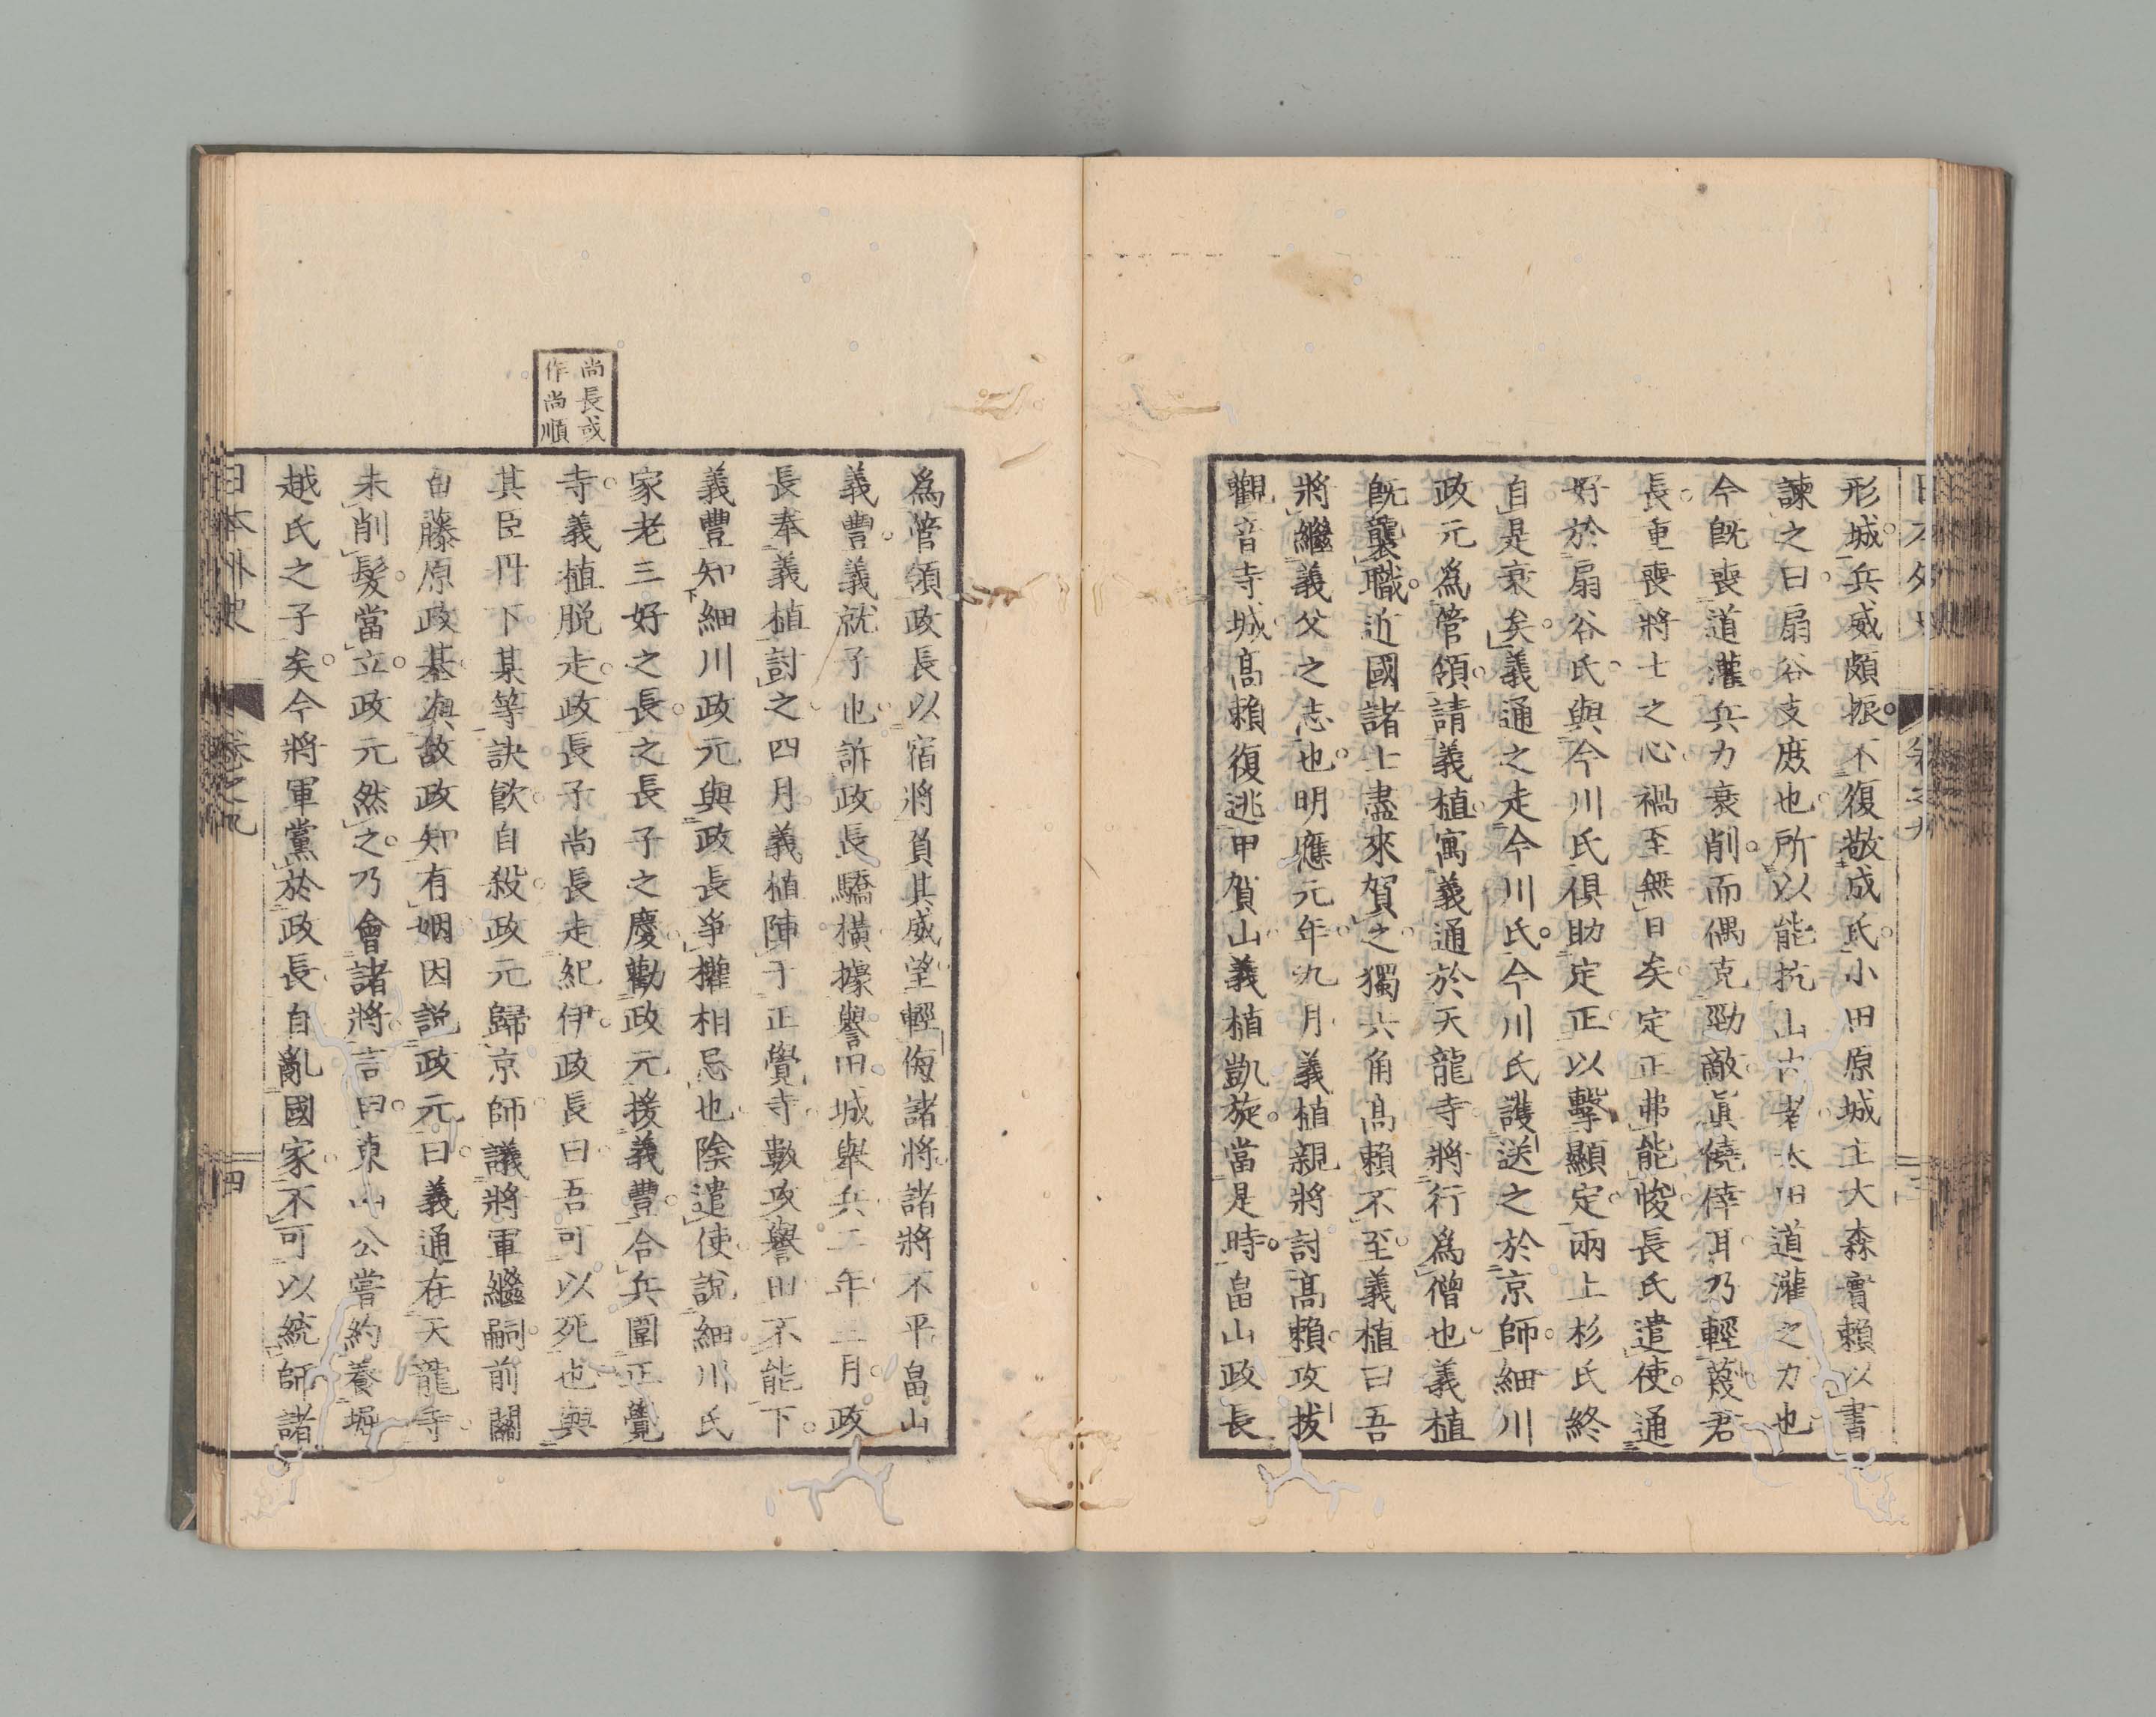 形城兵威頗振不復敬成氏小田原城主大森實頼以書
諫之曰扇谷支庶也所以能抗山内者太田道灌之力也
今既喪道灌兵力衰削而偶克勁敵眞僥倖耳乃輕蔑君
長重喪將士之心禍至無日矣定正弗能悛長氏遣使通
好於扇谷氏與今川氏俱助定正以擊顯定兩上杉氏終
自是衰矣義通之走今川氏今川氏護送之於京師細川
政元爲管領請義植寓義通於天龍寺將行爲僧也義植
既襲職近國諸士盡來賀之獨六角高賴不至義植曰吾
將繼義父之志也明應元年九月義植親將討高賴攻拔
觀音寺城高賴復逃甲賀山義植凱旋當是時畠山政長
尚長或
作尚順
爲管領政長以宿將負其威望輕侮諸將諸將不平畠山
義豐義就子也訴政長驕横據譽田城擧兵二年二月政
長奉義植討之四月義植陣于正覺寺數攻譽田不能下
義豐知細川政元與政長爭權相忌也陰遣使說細川氏
家老三好之長之長子之慶勸政元援義豐合兵圍正覺
寺義植脱走政長子尚長走紀伊政長曰吾可以死也與
其臣丹下某等訣飮自殺政元歸京師議將軍繼嗣前關
白藤原政基與故政知有姻因説政元曰義通在天龍寺
未削髮當立政元然之乃會諸將言曰東山公嘗約養堀
越氏之子矣今將軍黨於政長自亂國家不可以統師諸
日本外史
卷之九
四